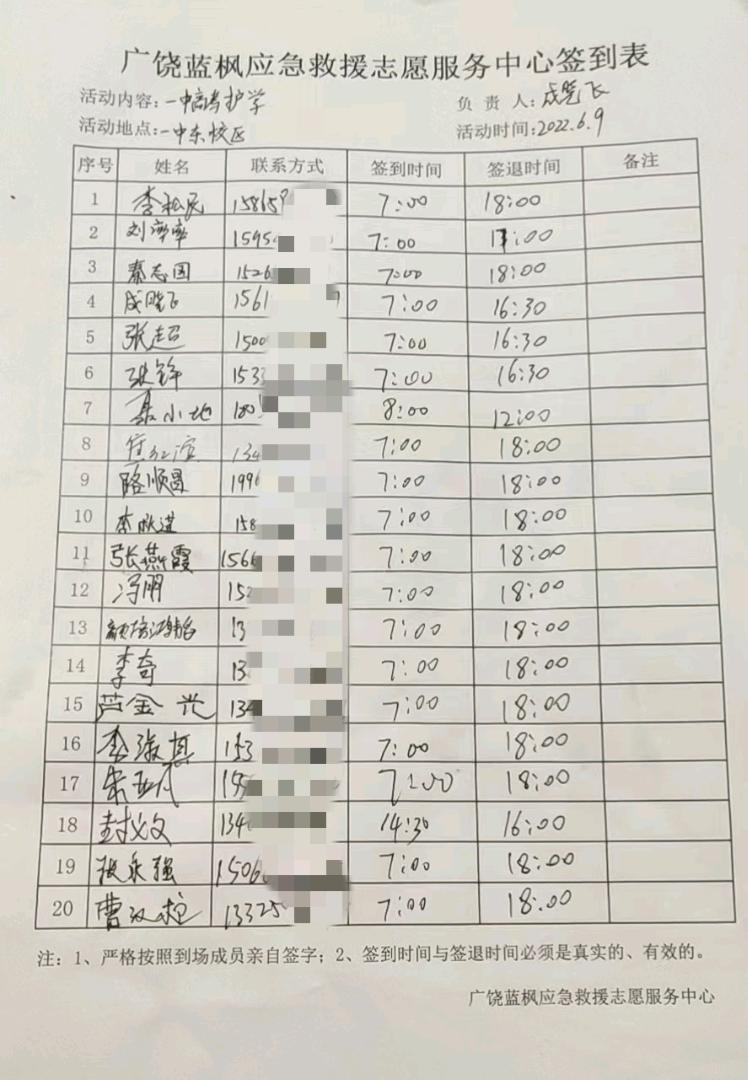 广饶蓝枫应急救援志愿服务中心签到表
活动内容:一中高考护学 负责人:成晓飞
活动地点:一中东校区 活动时间:2022.6.9
序号 姓名 联系方式 签到时间 签退时间 备注
1 李松民 15865 7:00 18:00
2 刘 1595 7:00 17:00
3 秦志国 1526 7:00 18:00
4 成晓飞 1561 7:00 16:30
5 张超 1500 7:00 16:30
6 张锋 153 7:00 16:30
7 聂小地 180 8:00 12:00
8 134 7:00 18:00
9 路顺昌 1996 7:00 18:00
10 李 158 7:00 18:00
11 张燕霞 1566 7:00 18:00
12 冯朋 152 7:00 18:00
13 13 7:00 18:00
14 李奇 13 7:00 18:00
15 芦金兴 134 7:00 18:00
16 李淑其 153 7:00 18:00
17 朱亚凡 15 7:00 18:00
18 封文 134 14:30 16:00
19 张永强 1506 7:00 18:00
20 曹 13325 7:00 18:00
注:1、严格按照到场成员亲自签字;2、签到时间与签退时间必须是真实的、有效的。
广饶蓝枫应急救援志愿服务中心